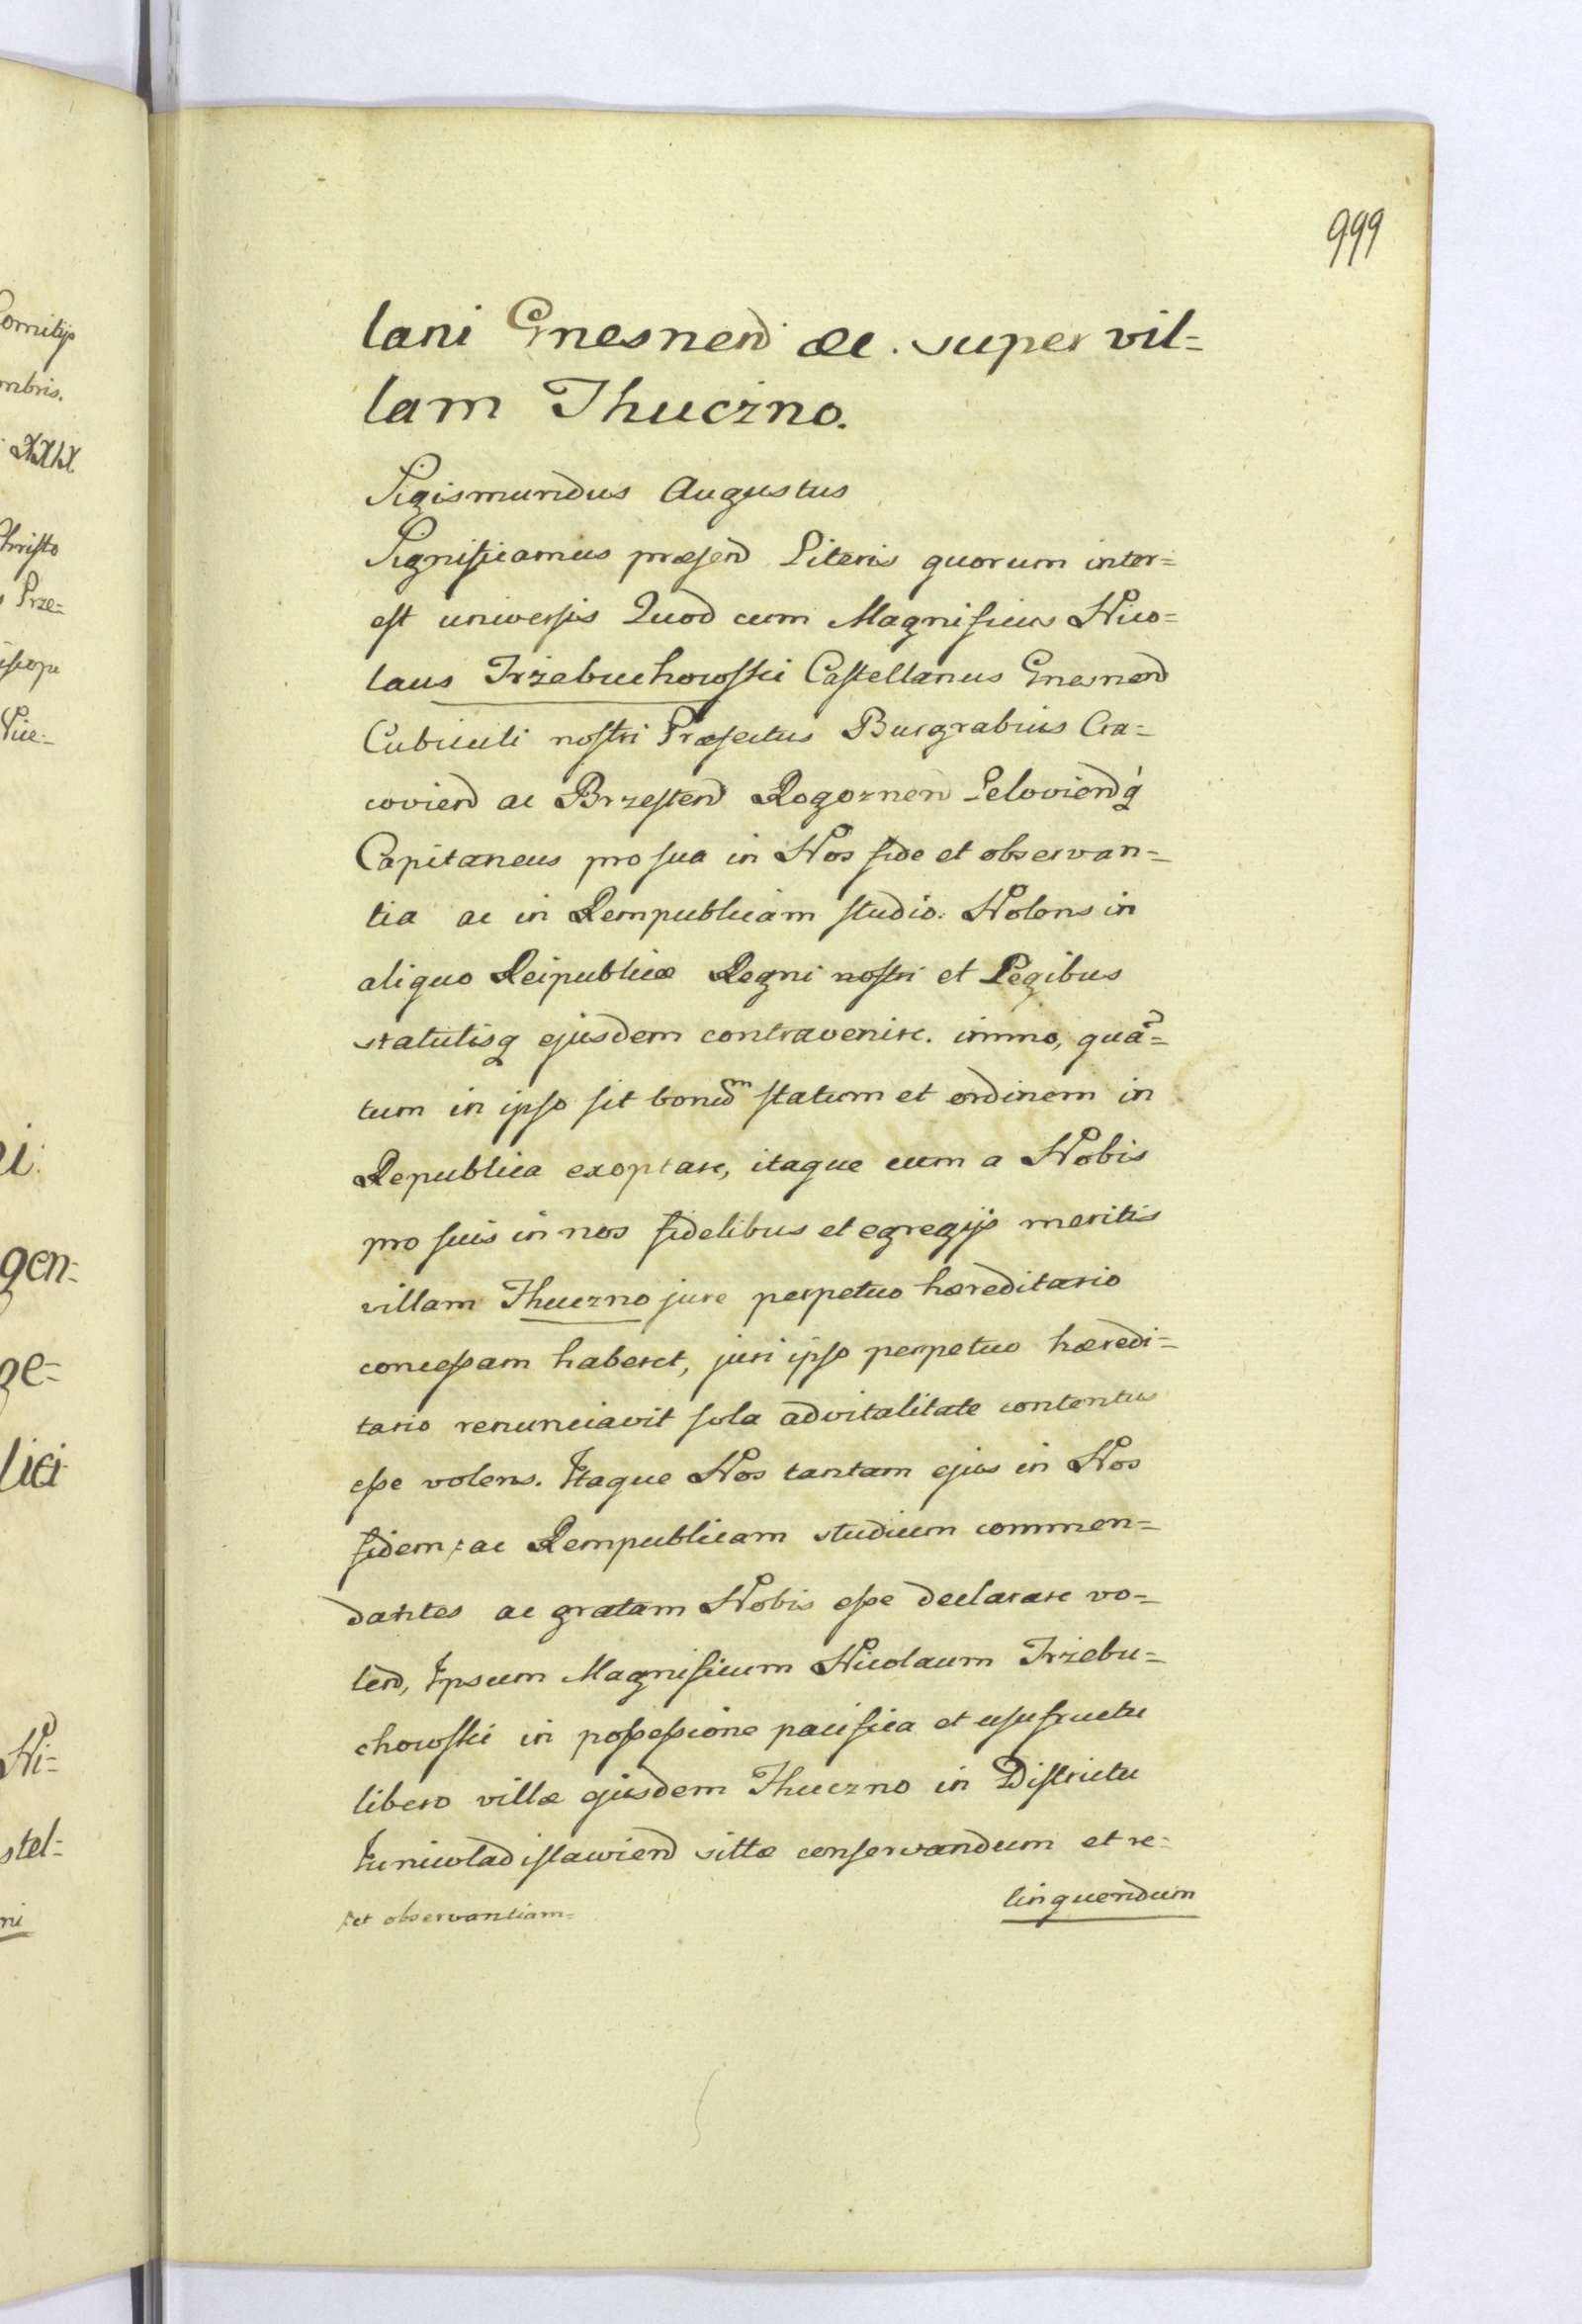 999
lani Gnesnen &c. super vil=
lam Thuczno.
Sigismundus Augustus
Significamus præsen Literis quorum inter=
est universis Quod cum Magnificus Nico=
laus Trzebuchowski Castellanus Gnesnen
Cubiculi nostri Præfectus Burgrabius Cra=
covien ac Brzesten Rogoznen Lelovienq
Capitaneus pro sua in Nos fide et observan=
tia ac in Rempublicam studio. Nolens in
aliquo Reipublicæ Regni nostri et Legibus
statutisq ejusdem contravenire. immo, quã=
tum in ipso sit bonum statum et ordinem in
Republica exoptare, itaque cum a Nobis
pro suis in nos fidelibus et egregijs meritis
villam Thuczno jure perpetuo hæreditario
concessam haberet, juri ipso perpetuo hæredi=
tario renunciavit sola advitalitate contentus
esse volens. Itaque Nos tantam ejus in Nos
fidem, ac Rempublicam studium commen=
dantes ac gratam Nobis esse declarare vo=
len, Ipsum Magnificum Nicolaum Trzebu=
chowski in possessione pacifica et usufructu
libero villæ ejusdem Thuczno in Districtu
Iuniwladislawien sittæ conservandum et re=
et observantiam=
linquendum
omitijs
mbris.
XXIX
Christo
Prze=
iscopi
Vice=
gen=
ge=
lici
Ni=
stel=
ni